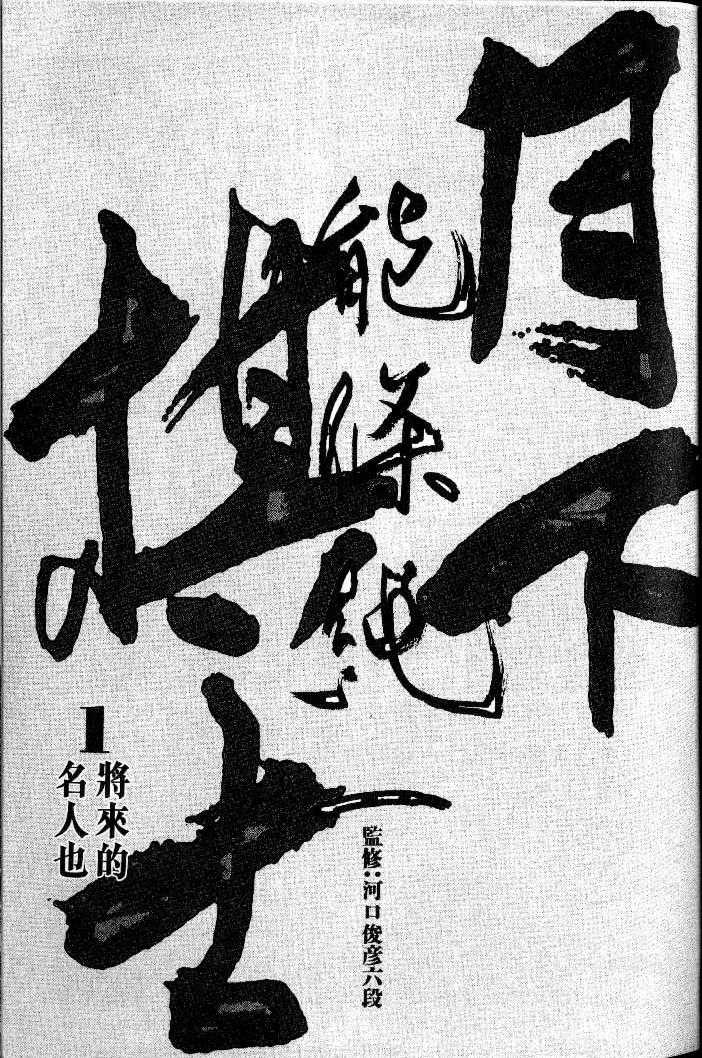 月下
棋士
能條純一
監修:河口俊彦六段
1
將來的
名人也